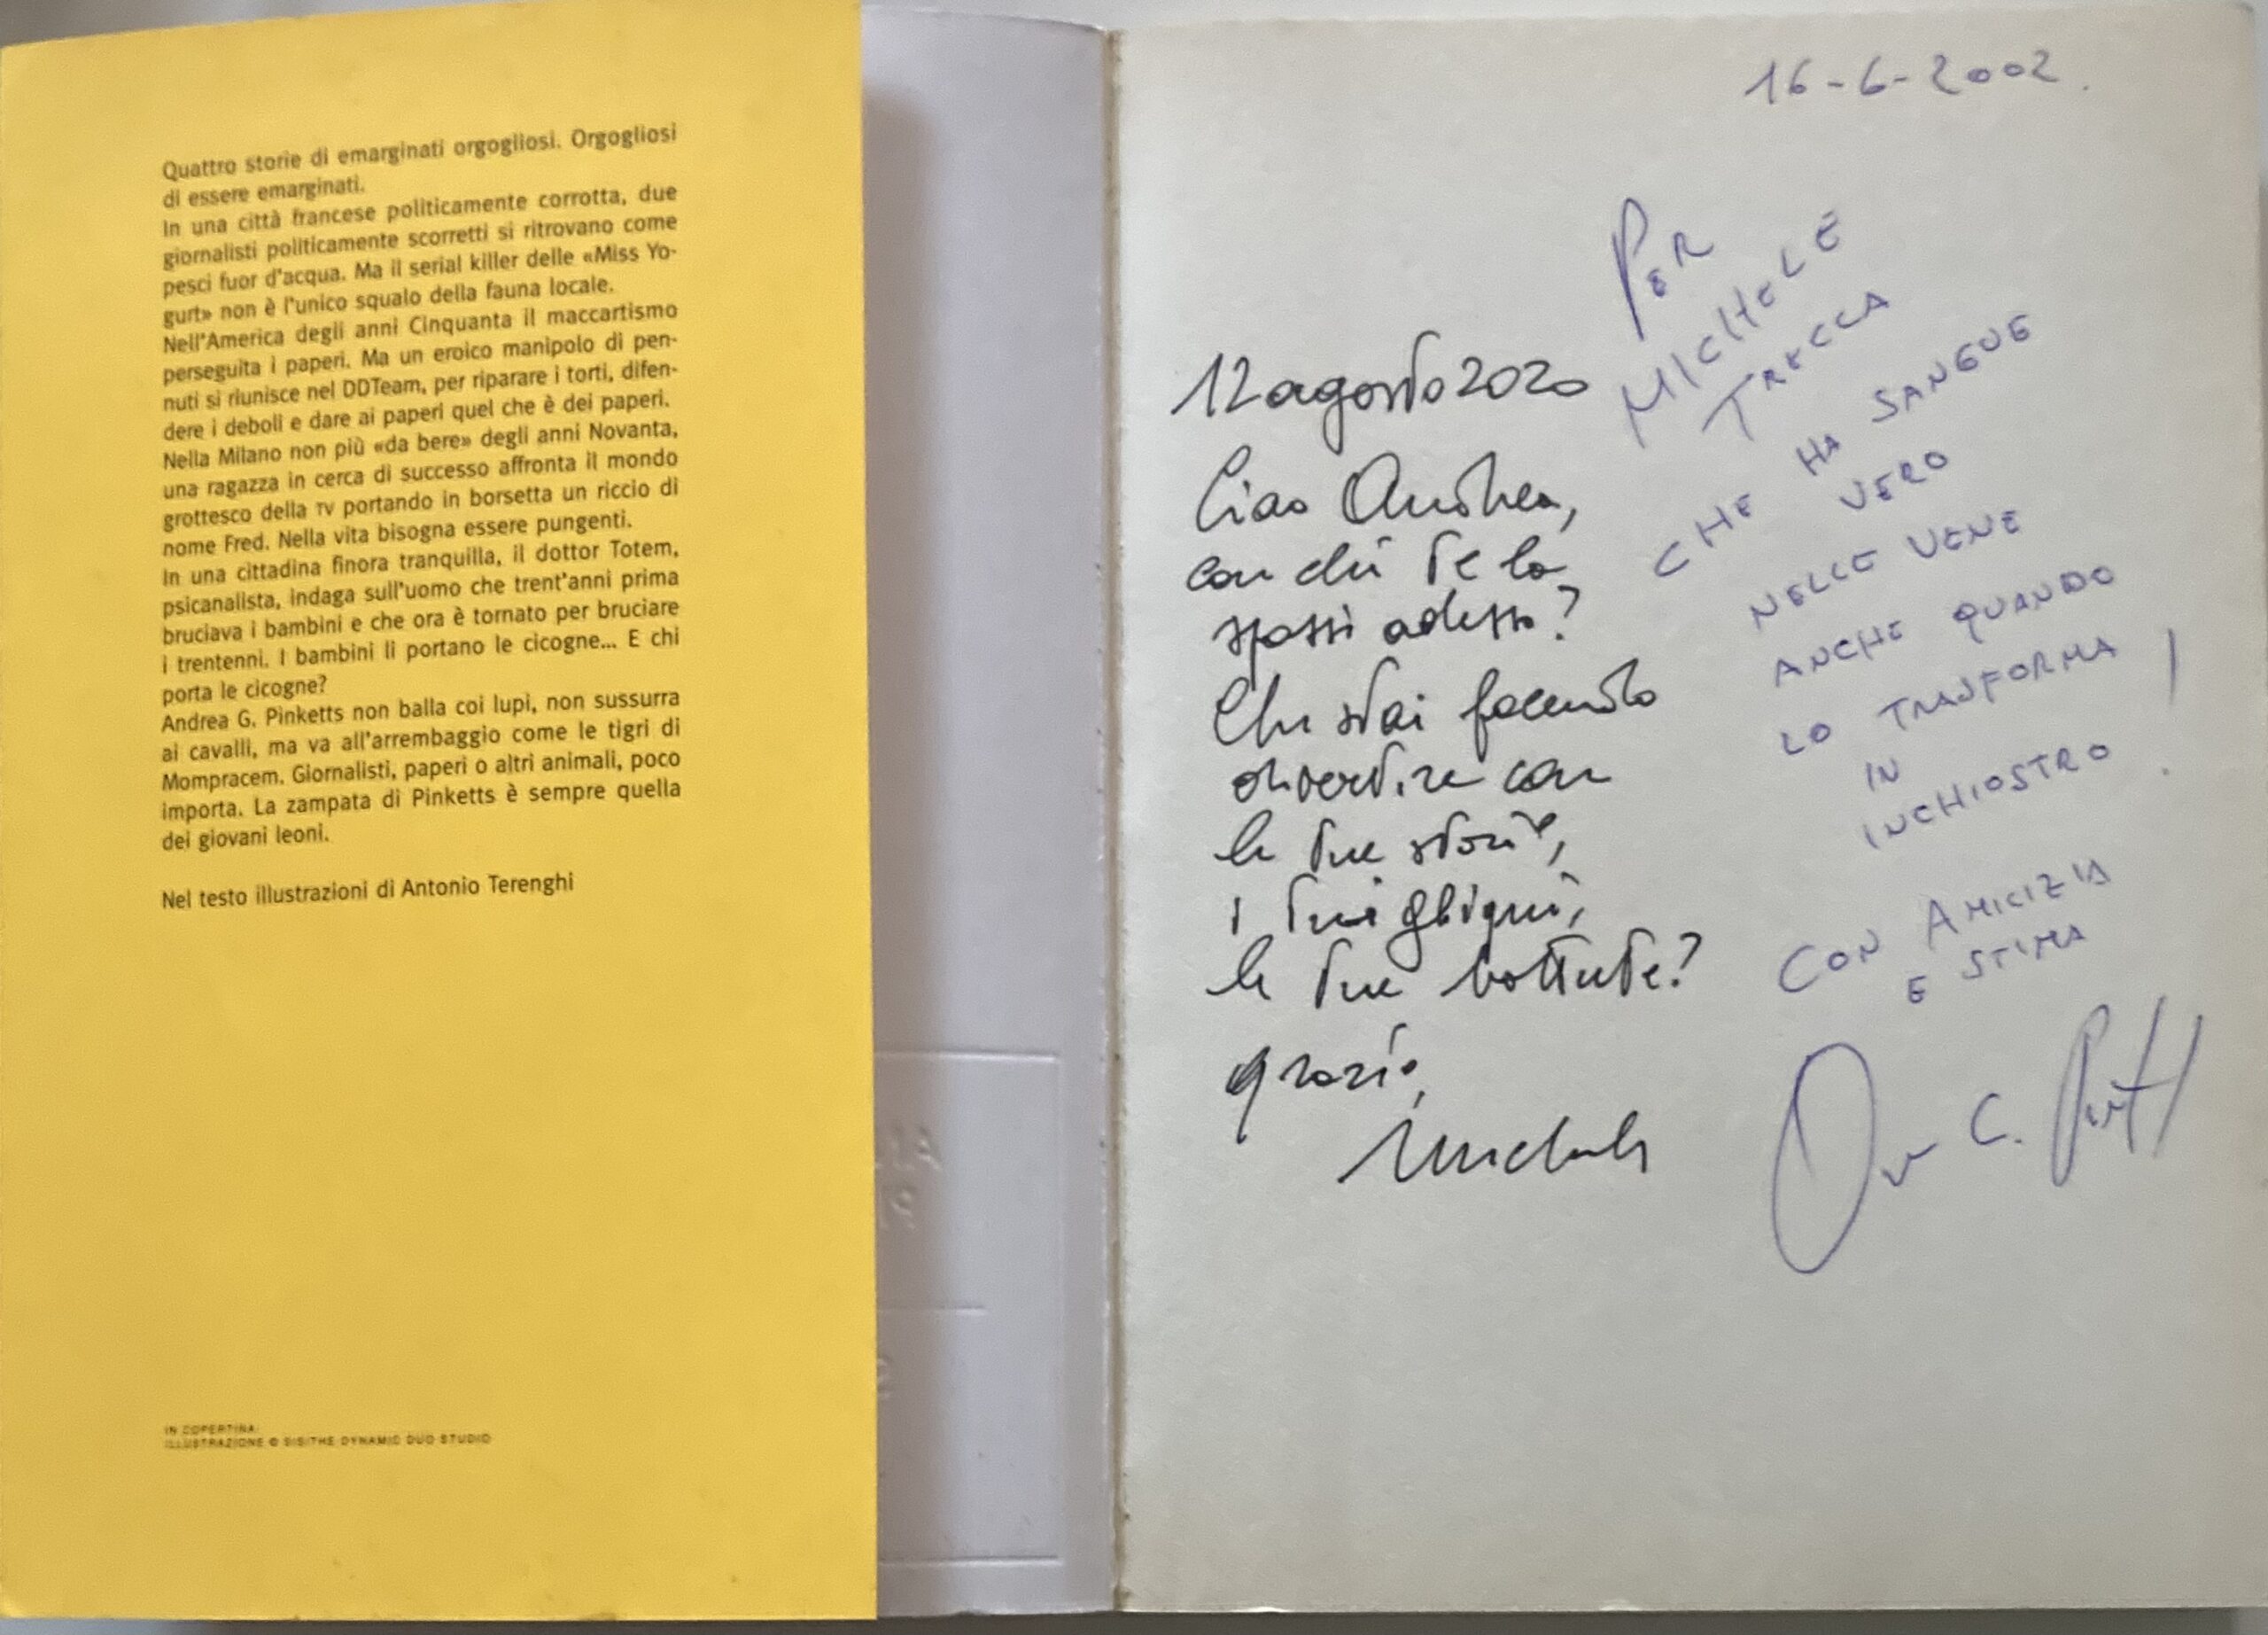 Quattro storie di emarginati orgogliosi. Orgogliosi
di essere emarginati.
In una città francese politicamente corrotta, due
giornalisti politicamente scorretti si ritrovano come
pesci fuor d'acqua. Ma il serial killer delle «Miss Yo-
gurt» non è l'unico squalo della fauna locale.
Nell'America degli anni Cinquanta il maccartismo
perseguita i paperi. Ma un eroico manipolo di pen-
nuti si riunisce nel DDTeam, per riparare i torti, difen-
dere i deboli e dare ai paperi quel che è dei paperi.
Nella Milano non più «da bere» degli anni Novanta,
una ragazza in cerca di successo affronta il mondo
grottesco della TV portando in borsetta un riccio di
nome Fred. Nella vita bisogna essere pungenti.
In una cittadina finora tranquilla, il dottor Totem,
psicanalista, indaga sull'uomo che trent'anni prima
bruciava i bambini e che ora è tornato per bruciare
i trentenni. I bambini li portano le cicogne... E chi
porta le cicogne?
Andrea G. Pinketts non balla coi lupi, non sussurra
ai cavalli, ma va all'arrembaggio come le tigri di
Mompracem. Giornalisti, paperi o altri animali, poco
importa. La zampata di Pinketts è sempre quella
dei giovani leoni.
Nel testo illustrazioni di Antonio Terenghi
IN COPERTINA:
ILLUSTRAZIONE © SISITHE DYNAMIC DUO STUDIO
16-6-2002.
PER
MICHELE
TRECCA
CHE HA SANGUE
VERO
NELLE VENE
ANCHE QUANDO
LO TRASFORMA
IN
INCHIOSTRO!
CON AMICIZIA
E STIMA
12 agosto 2020
Ciao Andrea,
con chi te la
spassi adesso?
Chi stai facendo
divertire con
le tue storie,
i tuoi ghigni,
le tue battute?
grazie,
Michele